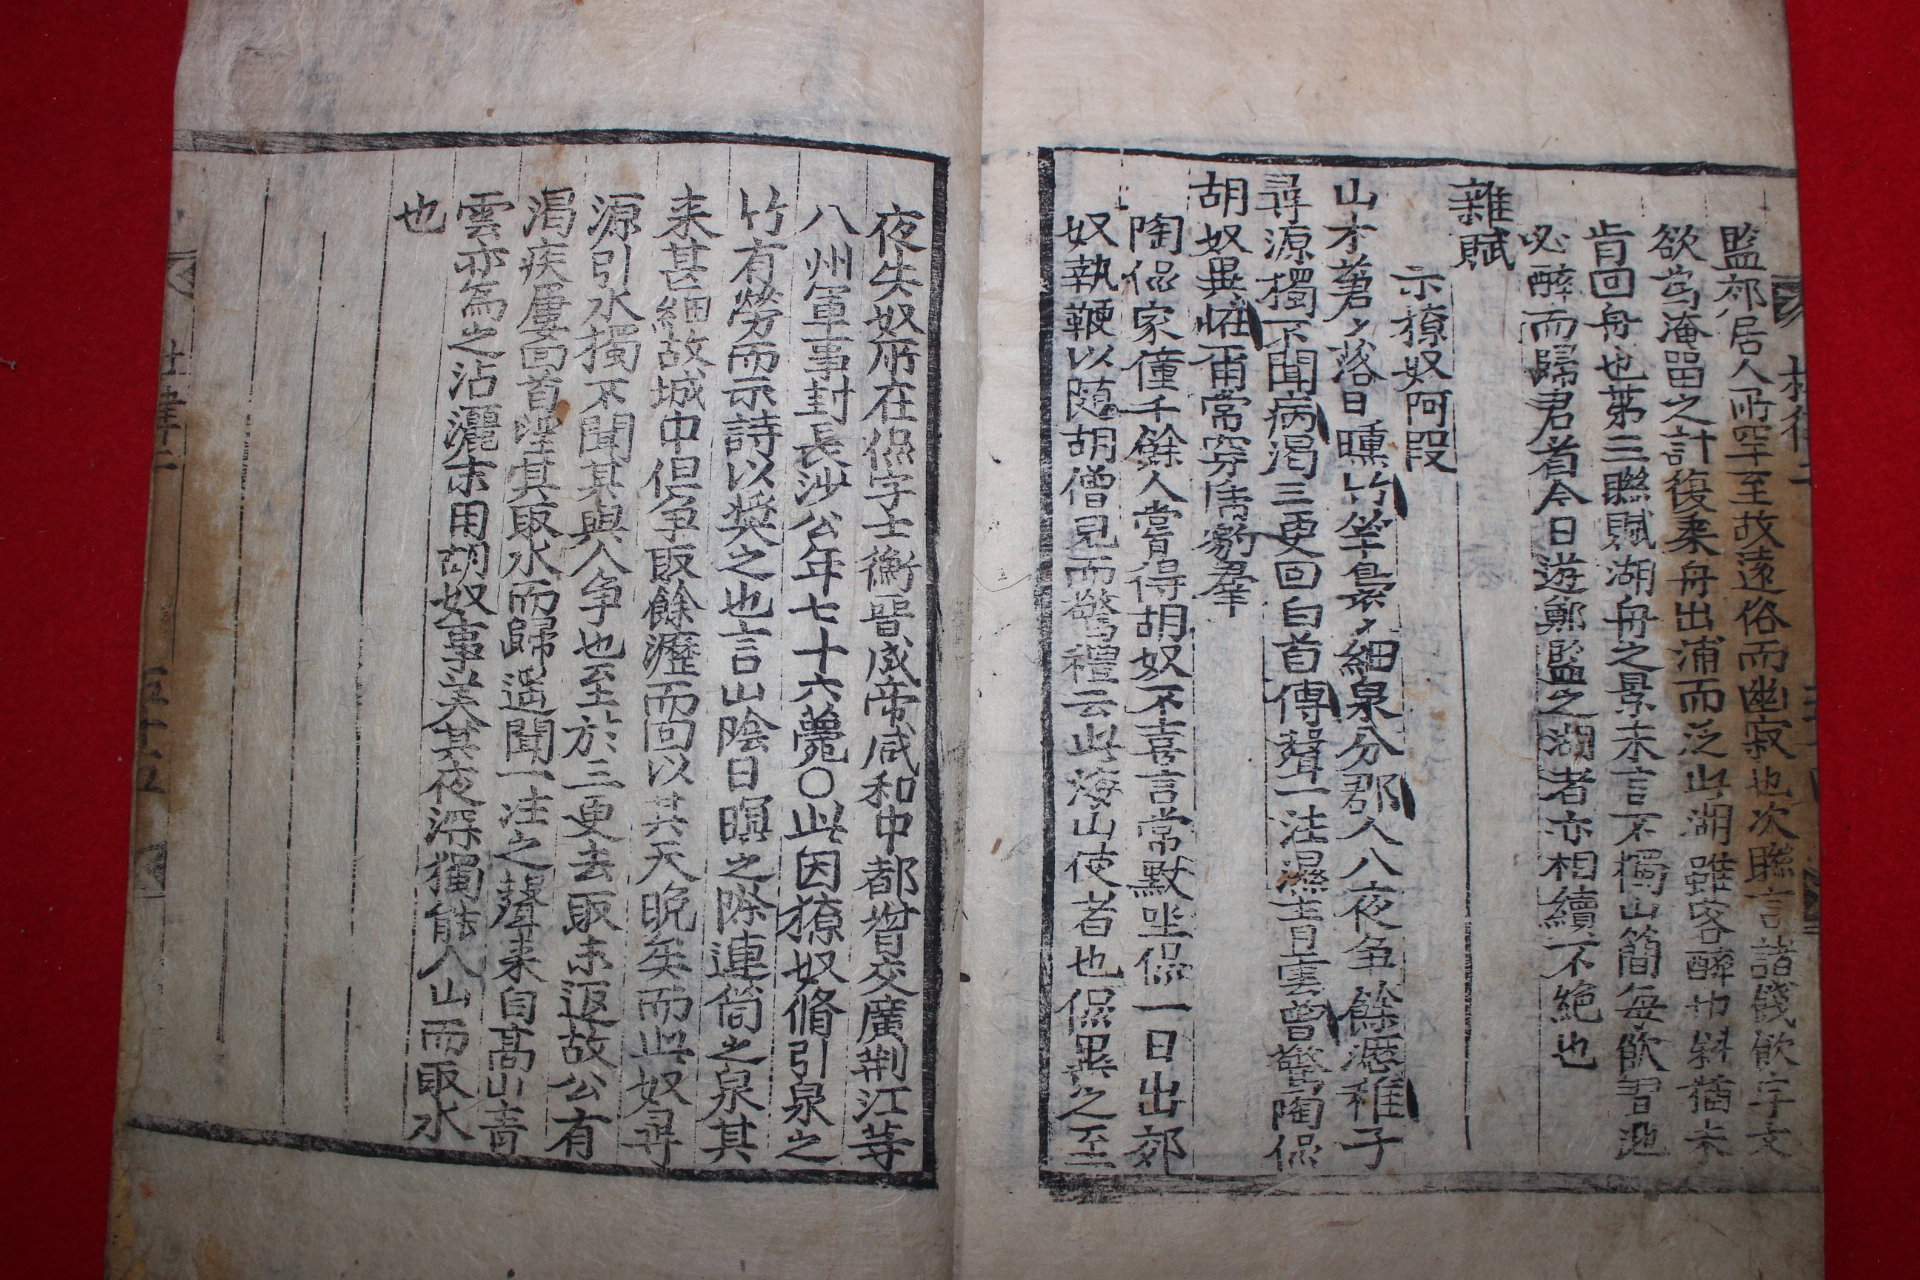 監郊居人所罕至故遠俗而幽寂也次聯言諸餞飲字文
欲爲淹留之計復来舟出浦而泛此湖雖客醉也斜猶未
肯回舟也第三聯賦湖舟之景末言不獨山簡每飲習池
必醉而歸君看今日遊鄭監之湖者亦相續不絶也
雜賦
示獠奴阿段
山木蒼〻落日曛竹竿裊〻細泉分郡人入夜争餘瀝稚子
尋源獨不聞病渴三更回白首傳聲一注濕青雲曾驚陶侃
胡奴異怪爾常穿虎豹羣
陶侃家僮千餘人嘗得胡奴不喜言常默坐侃一日出郊
奴執鞭以随胡僧見而驚禮云此海山使者也侃異之至
夜失奴所在侃字士衡晋成帝咸和中都督交廣荆江等
八州軍事封長沙公年七十六薨〇此因獠奴脩引泉之
竹有勞而示詩以奬之也言山陰日暝之際連筒之泉其
来甚細故城中但争取餘瀝而回以其天晩矣而此奴尋
源引水獨不聞其與人争也至於三更去取未返故公有
渴疾屢回首望其取水而歸遥聞一注之聲来自高山青
雲亦爲之沾灑末用胡奴事美其夜深獨能入山而取水
也
五十五